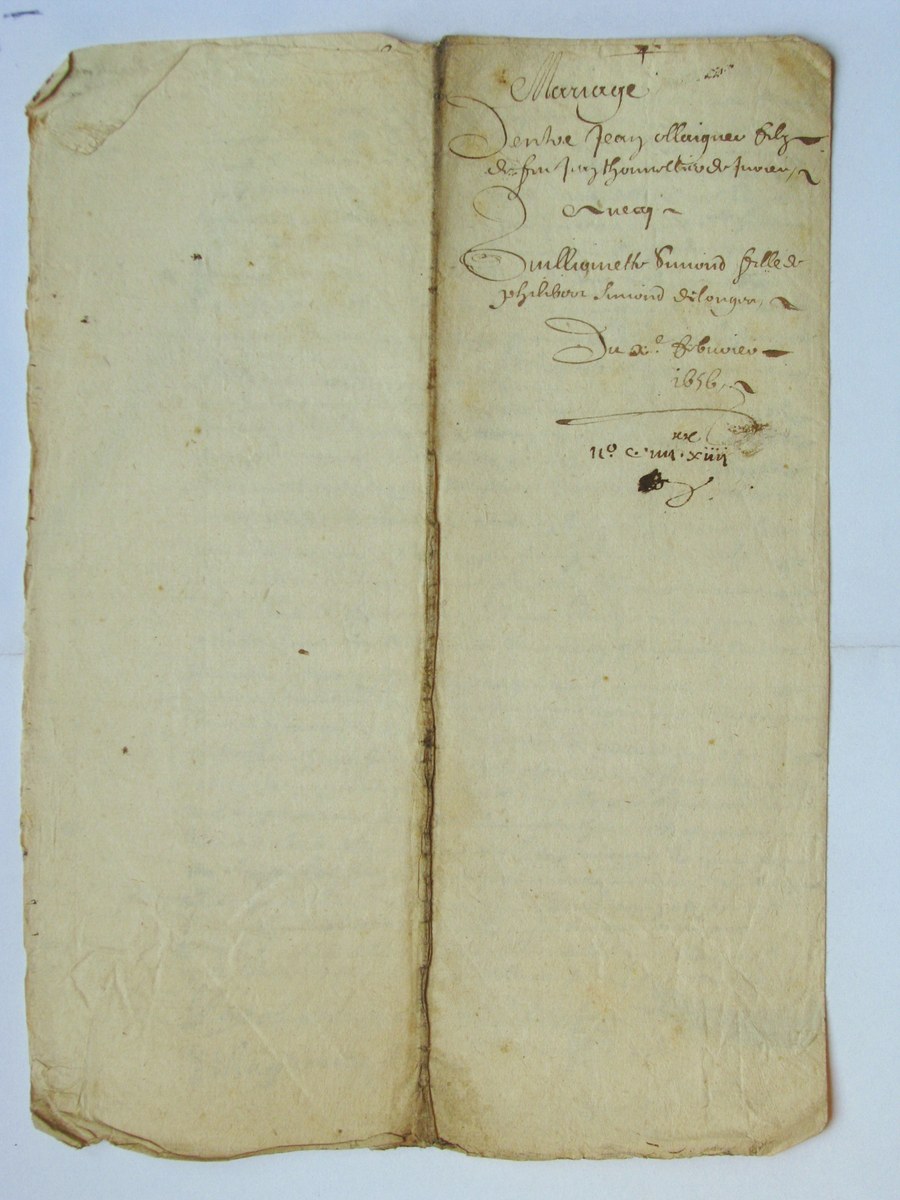 Mariage
Dentre Jean ollaignier filz
de feu Jean thomollier de
Avecq
Guilliquette Simond fille de
philibert Simond de longer
Du xe. febvrier
1656
no. c. iiii xx. xiiii